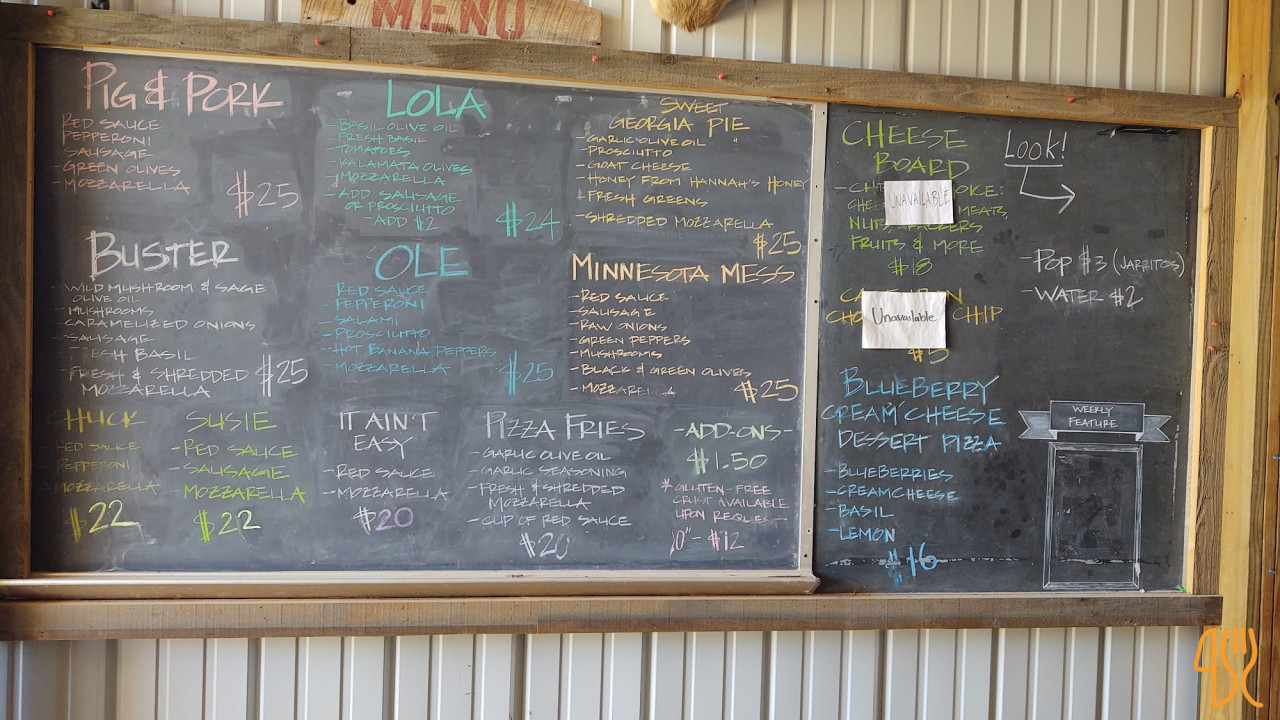 MENU
PIG & PORK
RED SAUCE
PEPPERONI
- SAUSAGE
- GREEN OLIVES
- MOZZARELLA
$25
LOLA
- BASIL OLIVE OIL
- FRESH BASIL
- TOMATOES
- KALAMATA OLIVES
- MOZZARELLA
- ADD SAUSAGE
OR PROSCIUTTO
- ADD $2
$24
SWEET
GEORGIA PIE
- GARLIC OLIVE OIL
- PROSCIUTTO
- GOAT CHEESE
- HONEY FROM HANNAH'S HONEY
- FRESH GREENS
- SHREDDED MOZZARELLA
$25
BUSTER
- WILD MUSHROOM & SAGE
OLIVE OIL
- MUSHROOMS
- CARAMELIZED ONIONS
- SAUSAGE
- FRESH BASIL
- FRESH & SHREDDED
MOZZARELLA
$25
OLE
- RED SAUCE
- PEPPERONI
- SALAMI
- PROSCIUTTO
- HOT BANANA PEPPERS
- MOZZARELLA
$25
MINNESOTA MESS
- RED SAUCE
- SAUSAGE
- RAW ONIONS
- GREEN PEPPERS
- MUSHROOMS
- BLACK & GREEN OLIVES
- MOZZARELLA
$25
HUCK
RED SAUCE
PEPPERONI
MOZZARELLA
$22
SUSIE
- RED SAUCE
- SAUSAGE
- MOZZARELLA
$22
IT AIN'T
EASY
- RED SAUCE
- MOZZARELLA
$20
PIZZA FRIES
- GARLIC OLIVE OIL
- GARLIC SEASONING
- FRESH & SHREDDED
MOZZARELLA
- CUP OF RED SAUCE
$20
- ADD-ONS -
$1.50
* GLUTEN-FREE
CRUST AVAILABLE
UPON REQUEST
10" - $12
CHEESE
BOARD
UNAVAILABLE
MEATS,
NUTS,
FRUITS & MORE
$18
Unavailable
CHIP
$5
BLUEBERRY
CREAM CHEESE
DESSERT PIZZA
- BLUEBERRIES
- CREAM CHEESE
- BASIL
- LEMON
$16
LOOK!
- POP $3 (JARRITOS)
- WATER $2
WEEKLY
FEATURE